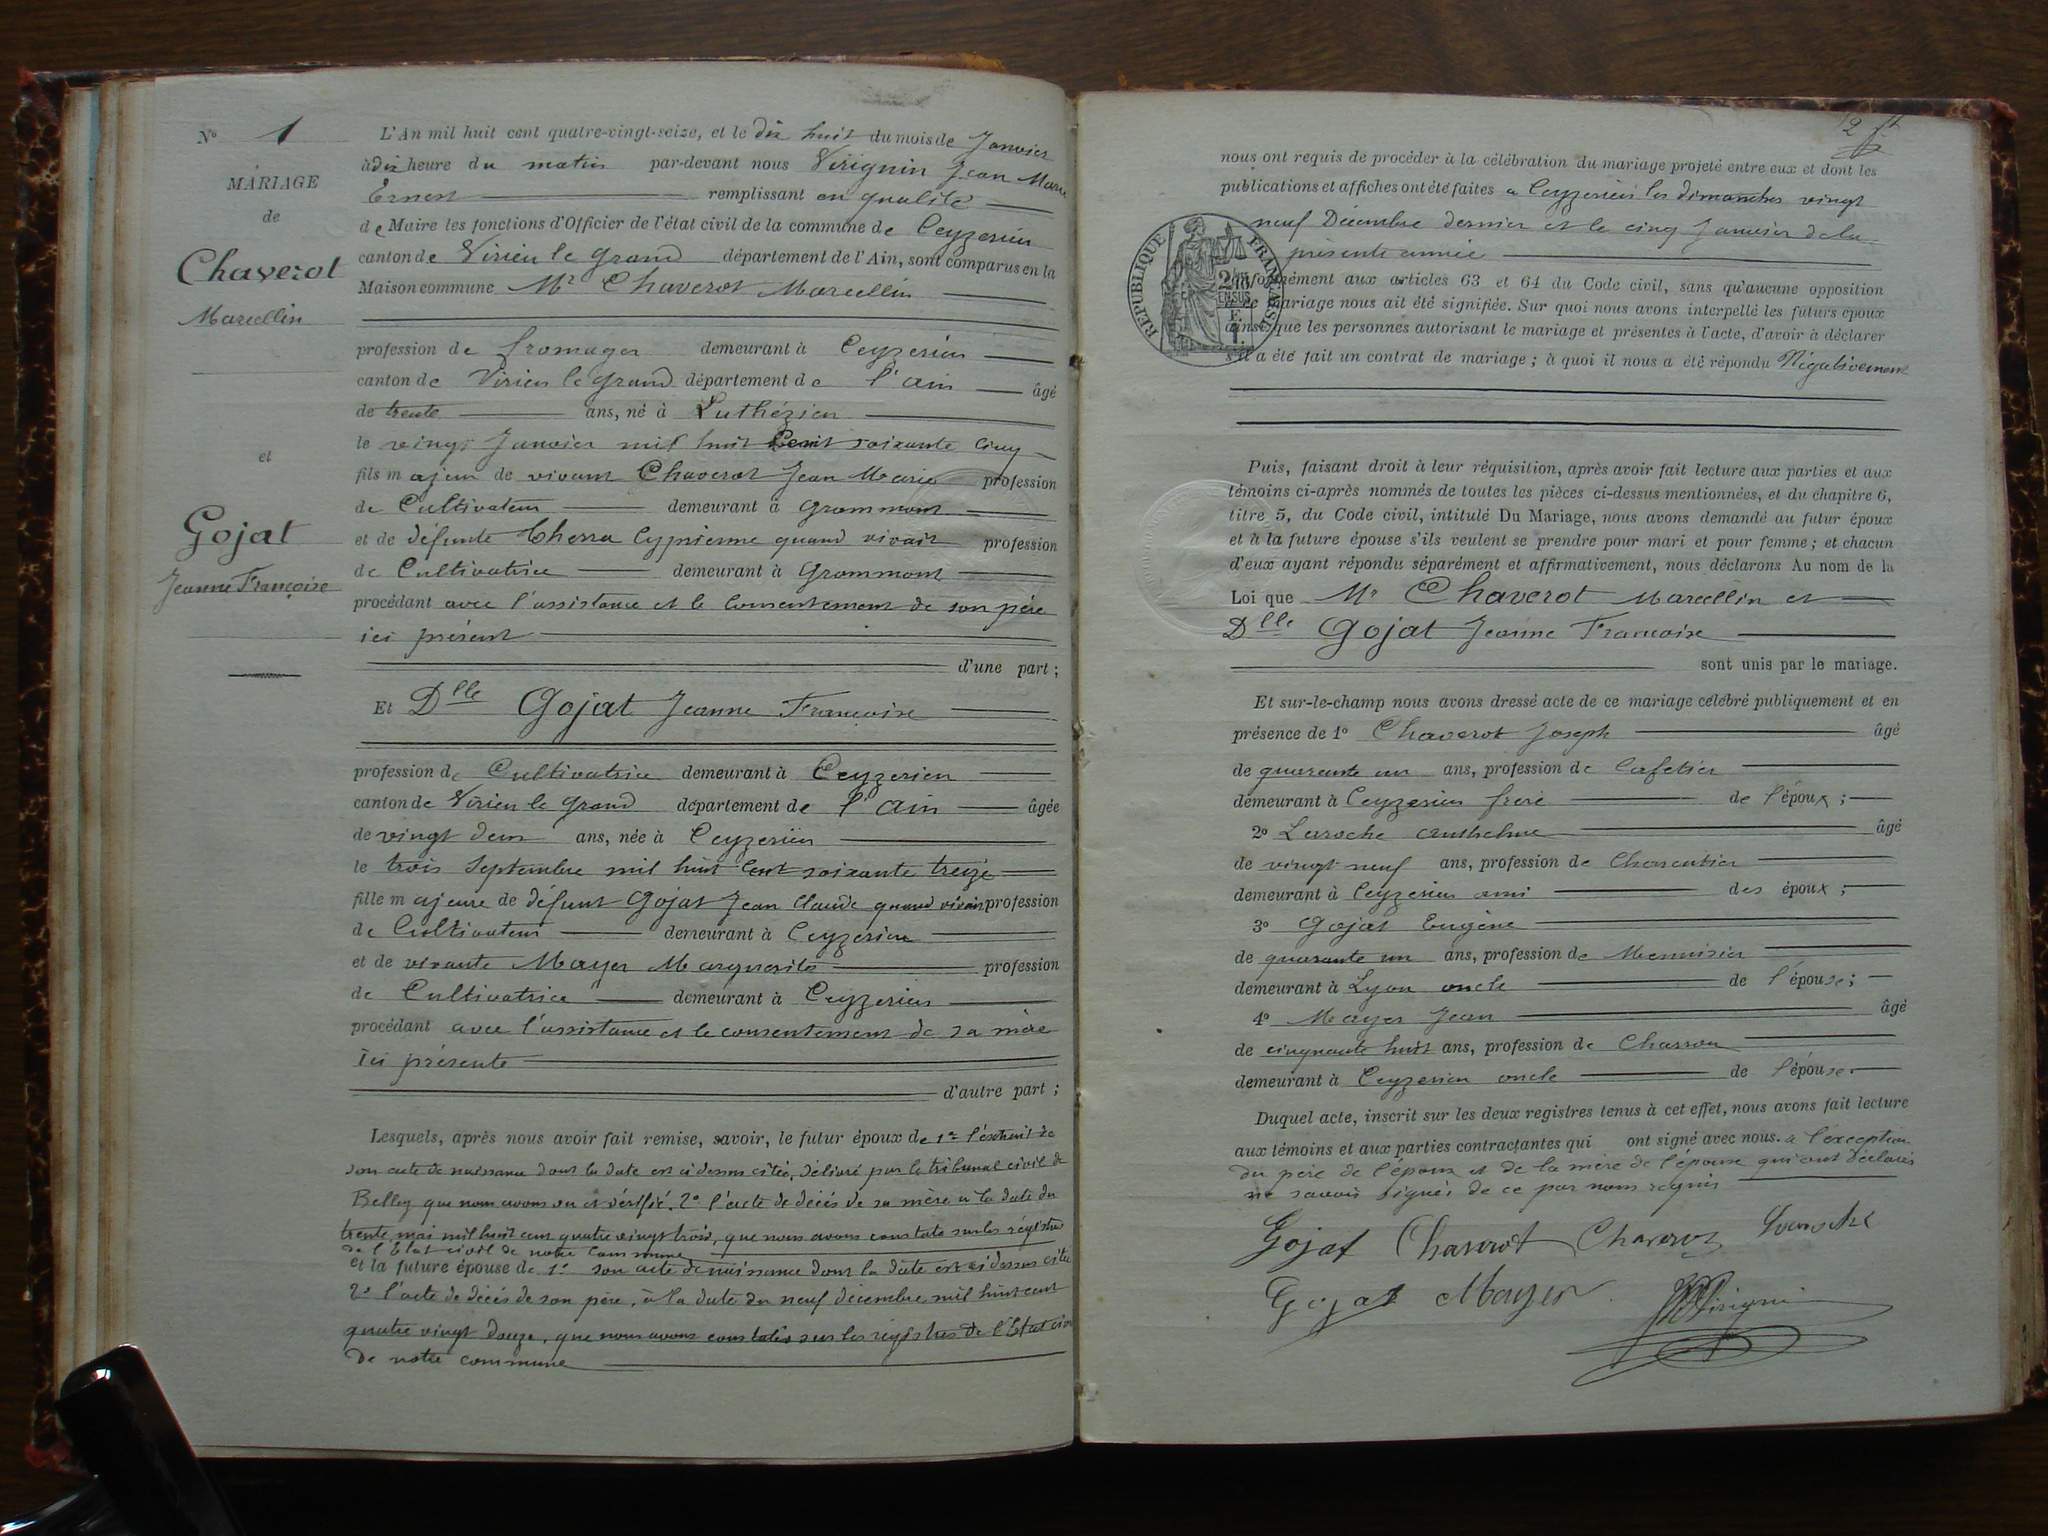 N° 1
MARIAGE
de
Chaverot
Marcellin
et
Gojat
Jeanne Françoise
L'An mil huit cent quatre-vingt-seize, et le dix huit du mois de Janvier
à dix heure du matin par-devant nous Virignin Jean Marie
Ernest remplissant en qualité
de Maire les fonctions d'Officier de l'état civil de la commune de Ceyzerieu
canton de Virieu le Grand département de l'Ain, sont comparus en la
Maison commune Mr Chaverot Marcellin
profession de fromager demeurant à Ceyzerieu
canton de Virieu le Grand département de l'Ain âgé
de trente ans, né à Luthézieu
le vingt Janvier mil huit Cent soixante cinq
fils majeur de vivant Chaverot Jean Marie profession
de Cultivateur demeurant à Grammont
et de défunte Cyprienne quand vivait profession
de Cultivatrice demeurant à Grammont
procédant avec l'assistance et le consentement de son père
ici présent
d'une part ;
Et Dlle Gojat Jeanne Françoise
profession de Cultivatrice demeurant à Ceyzerieu
canton de Virieu le Grand département de l'Ain âgée
de vingt deux ans, née à Ceyzerieu
le trois Septembre mil huit Cent soixante treize
fille majeure de défunt Gojat Jean Claude quand vivait profession
de Cultivateur demeurant à Ceyzerieu
et de vivante Mayer Marguerite profession
de Cultivatrice demeurant à Ceyzerieu
procédant avec l'assistance et le consentement de sa mère
ici présente
d'autre part ;
Lesquels, après nous avoir fait remise, savoir, le futur époux de 1° l'extrait de
son acte de naissance dont la date est ci dessus citée, délivré par le tribunal civil de
Belley que nous avons vu et vérifié. 2° l'acte de décès de sa mère à la date du
trente mai mil huit cent quatre vingt trois, que nous avons constaté sur les registres
de l'Etat civil de notre Commune
et la future épouse de 1° son acte de naissance dont la date est ci dessus citée
2° l'acte de décès de son père, à la date du neuf décembre mil huit cent
quatre vingt douze, que nous avons constatés sur les registres de l'Etat civil
de notre commune
2
nous ont requis de procéder à la célébration du mariage projeté entre eux et dont les
publications et affiches ont été faites à Ceyzerieu les dimanches vingt
neuf Décembre dernier et le cinq Janvier de la
présente année
RÉPUBLIQUE FRANÇAISE
conformément aux articles 63 et 64 du Code civil, sans qu'aucune opposition
à ce mariage nous ait été signifiée. Sur quoi nous avons interpellé les futurs époux
ainsi que les personnes autorisant le mariage et présentes à l'acte, d'avoir à déclarer
s'il a été fait un contrat de mariage ; à quoi il nous a été répondu Négativement
Puis, faisant droit à leur réquisition, après avoir fait lecture aux parties et aux
témoins ci-après nommés de toutes les pièces ci-dessus mentionnées, et du chapitre 6,
titre 5, du Code civil, intitulé Du Mariage, nous avons demandé au futur époux
et à la future épouse s'ils veulent se prendre pour mari et pour femme ; et chacun
d'eux ayant répondu séparément et affirmativement, nous déclarons Au nom de la
Loi que Mr Chaverot Marcellin et
Dlle Gojat Jeanne Françoise
sont unis par le mariage.
Et sur-le-champ nous avons dressé acte de ce mariage célébré publiquement et en
présence de 1° Chaverot Joseph âgé
de quarante un ans, profession de Cafetier
demeurant à Ceyzerieu frère de l'époux ;
2° Laroche Anthelme âgé
de vingt neuf ans, profession de Charcutier
demeurant à Ceyzerieu ami des époux ;
3° Gojat Eugène
de quarante un ans, profession de Menuisier
demeurant à Lyon oncle de l'épouse ;
4° Mayer Jean âgé
de cinquante huit ans, profession de Charron
demeurant à Ceyzerieu oncle de l'épouse.
Duquel acte, inscrit sur les deux registres tenus à cet effet, nous avons fait lecture
aux témoins et aux parties contractantes qui ont signé avec nous. à l'exception
du père de l'époux et de la mère de l'épouse qui ont déclarés
ne savoir signer de ce par nous requis
Gojat Chaverot Chaverot Laroche
Gojat Mayer Virignin